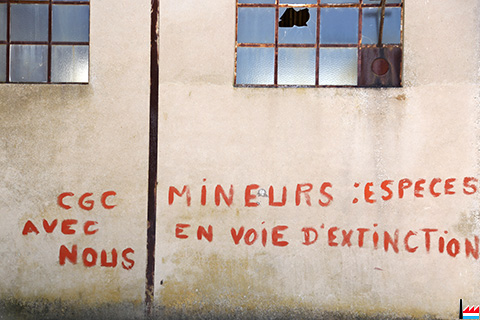 CGC
AVEC
NOUS
MINEURS : ESPECES
EN VOIE D'EXTINCTION